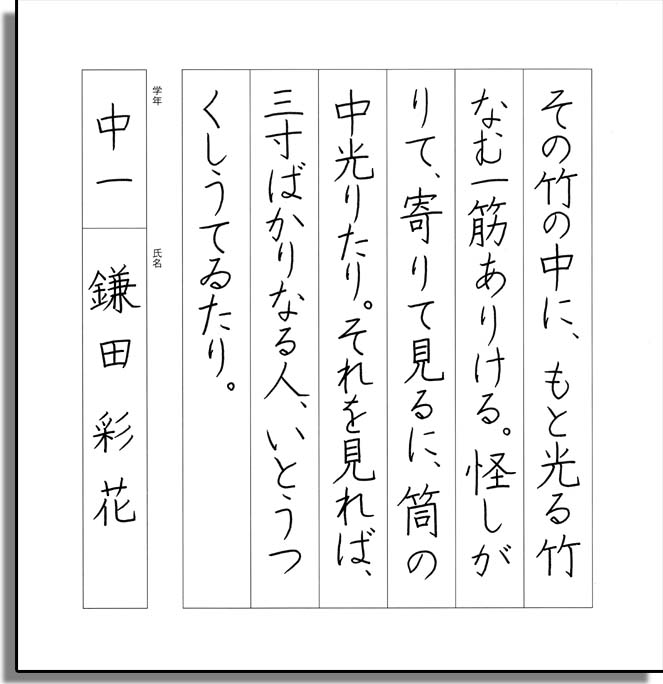 その竹の中に、もと光る竹
なむ一筋ありける。怪しが
りて、寄りて見るに、筒の
中光りたり。それを見れば、
三寸ばかりなる人、いとうつ
くしうてゐたり。
学年
中一
氏名
鎌田彩花